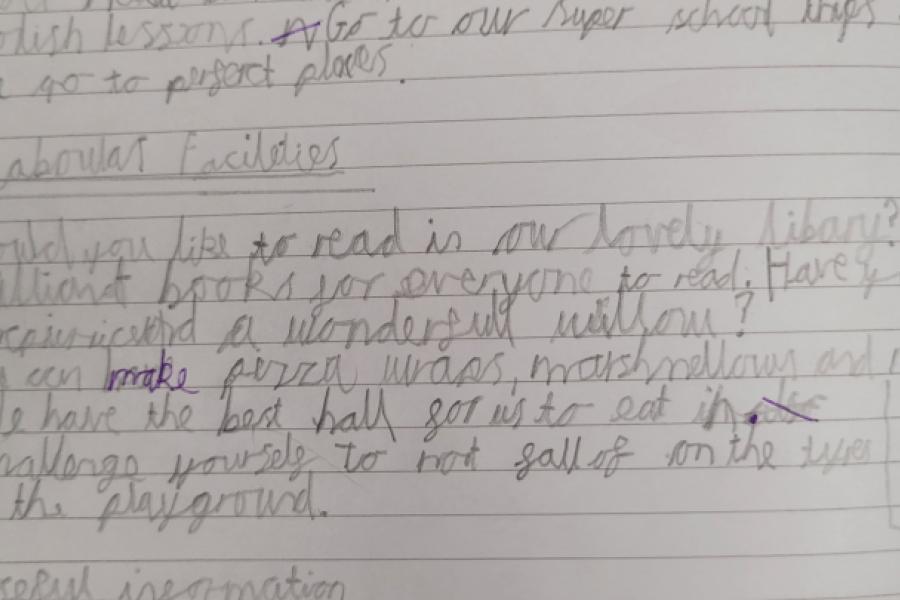 lish lessons. Go to our super school trips
go to perfect places.
aboulas Facileties
ould you like to read in our lovely libary?
illiant books for everyone to read. Have
a wonderfull willow?
can make pizza wraps, marshmellows and
have the best hall for us to eat in.
hallenge yourself to not fall of on the tyres
the playground.
seful information